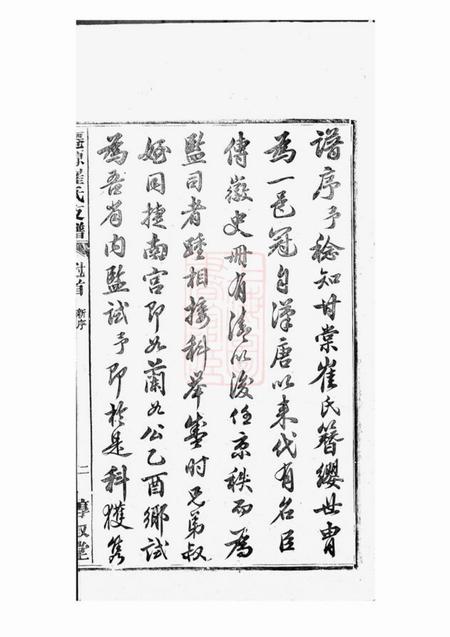 譜序予稔知甘棠崔氏簪纓世胄
為一邑冠自漢唐以来代有名臣
傳徽史冊有清以後任京秩而為
監司者踵相接科举盛时兄弟叔
姪同捷南宫即如蘭如公乙酉鄉試
為吾省内監試予即於是科獲雋
崔氏支譜
卷首
新序
二
敘堂